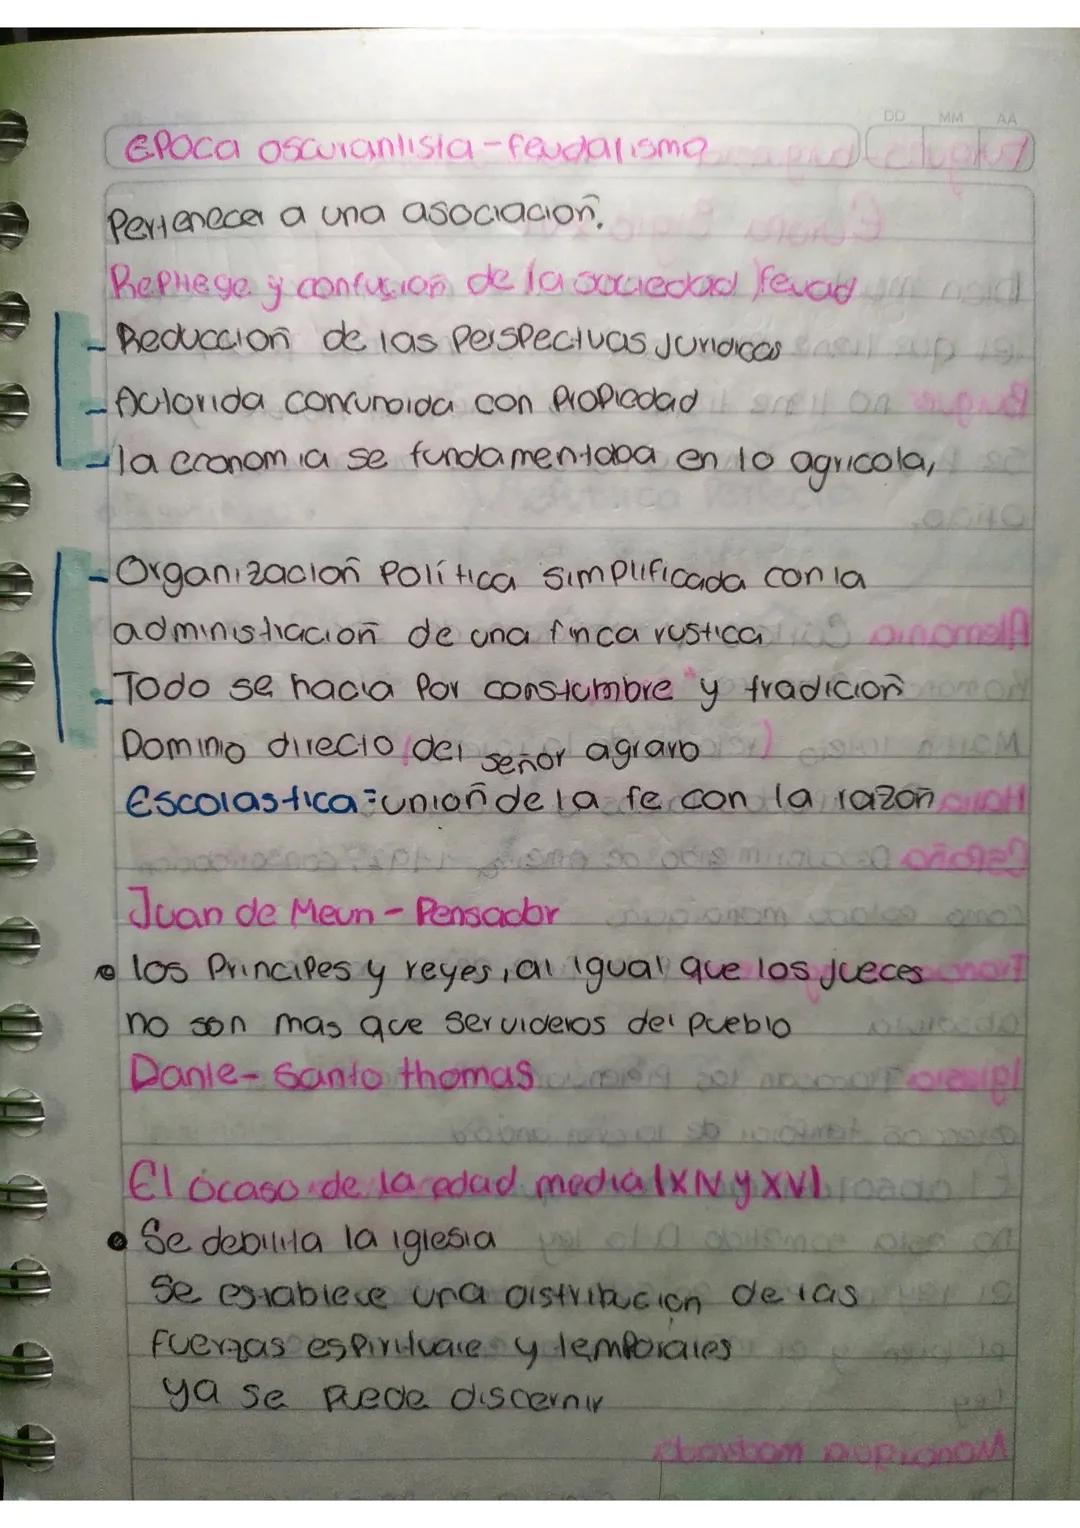 DD MM AA
Epoca oscurantista-feudalismo
Pertenecer a una asociacioñ.
Repliege y confusioñ de la sociedad feuad
- Reduccioñ de las Perspectivas Juridicas
- Autorida confundida con Propiedad
- la economia se fundamentaba en lo agricola,
- Organizacioñ Política simplificada con la
administracioñ de una finca rustica
- Todo se hacia Por constumbre y tradicioñ
Dominio directo del señor agraro
Escolastica = unioñ de la fe con la razoñ
Juan de Meun - Pensador
• los Principes y reyes, al igual que los jueces
no son mas que servideros del Pueblo
Dante - Santo thomas
El ocaso de la edad media (XIV y XV)
• Se debilita la iglesia
Se establece una distribucion de las
fuerzas espirituale y temporales
ya se puede discernir